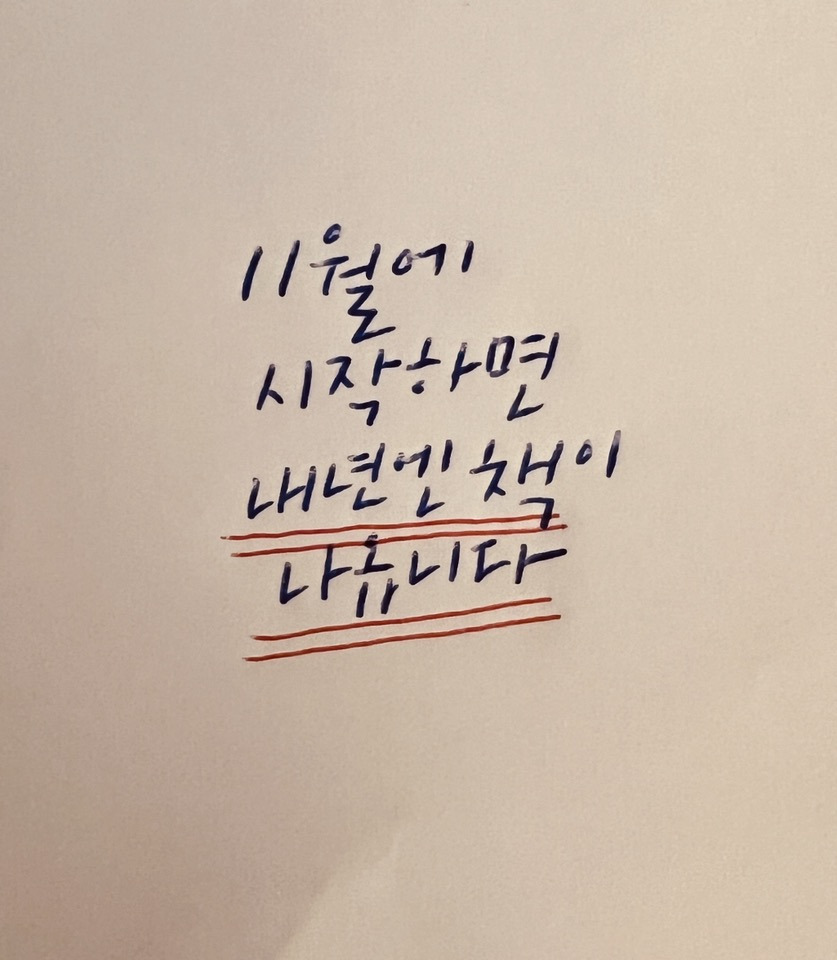 11월에
시작하면
내년엔 책이
나옵니다